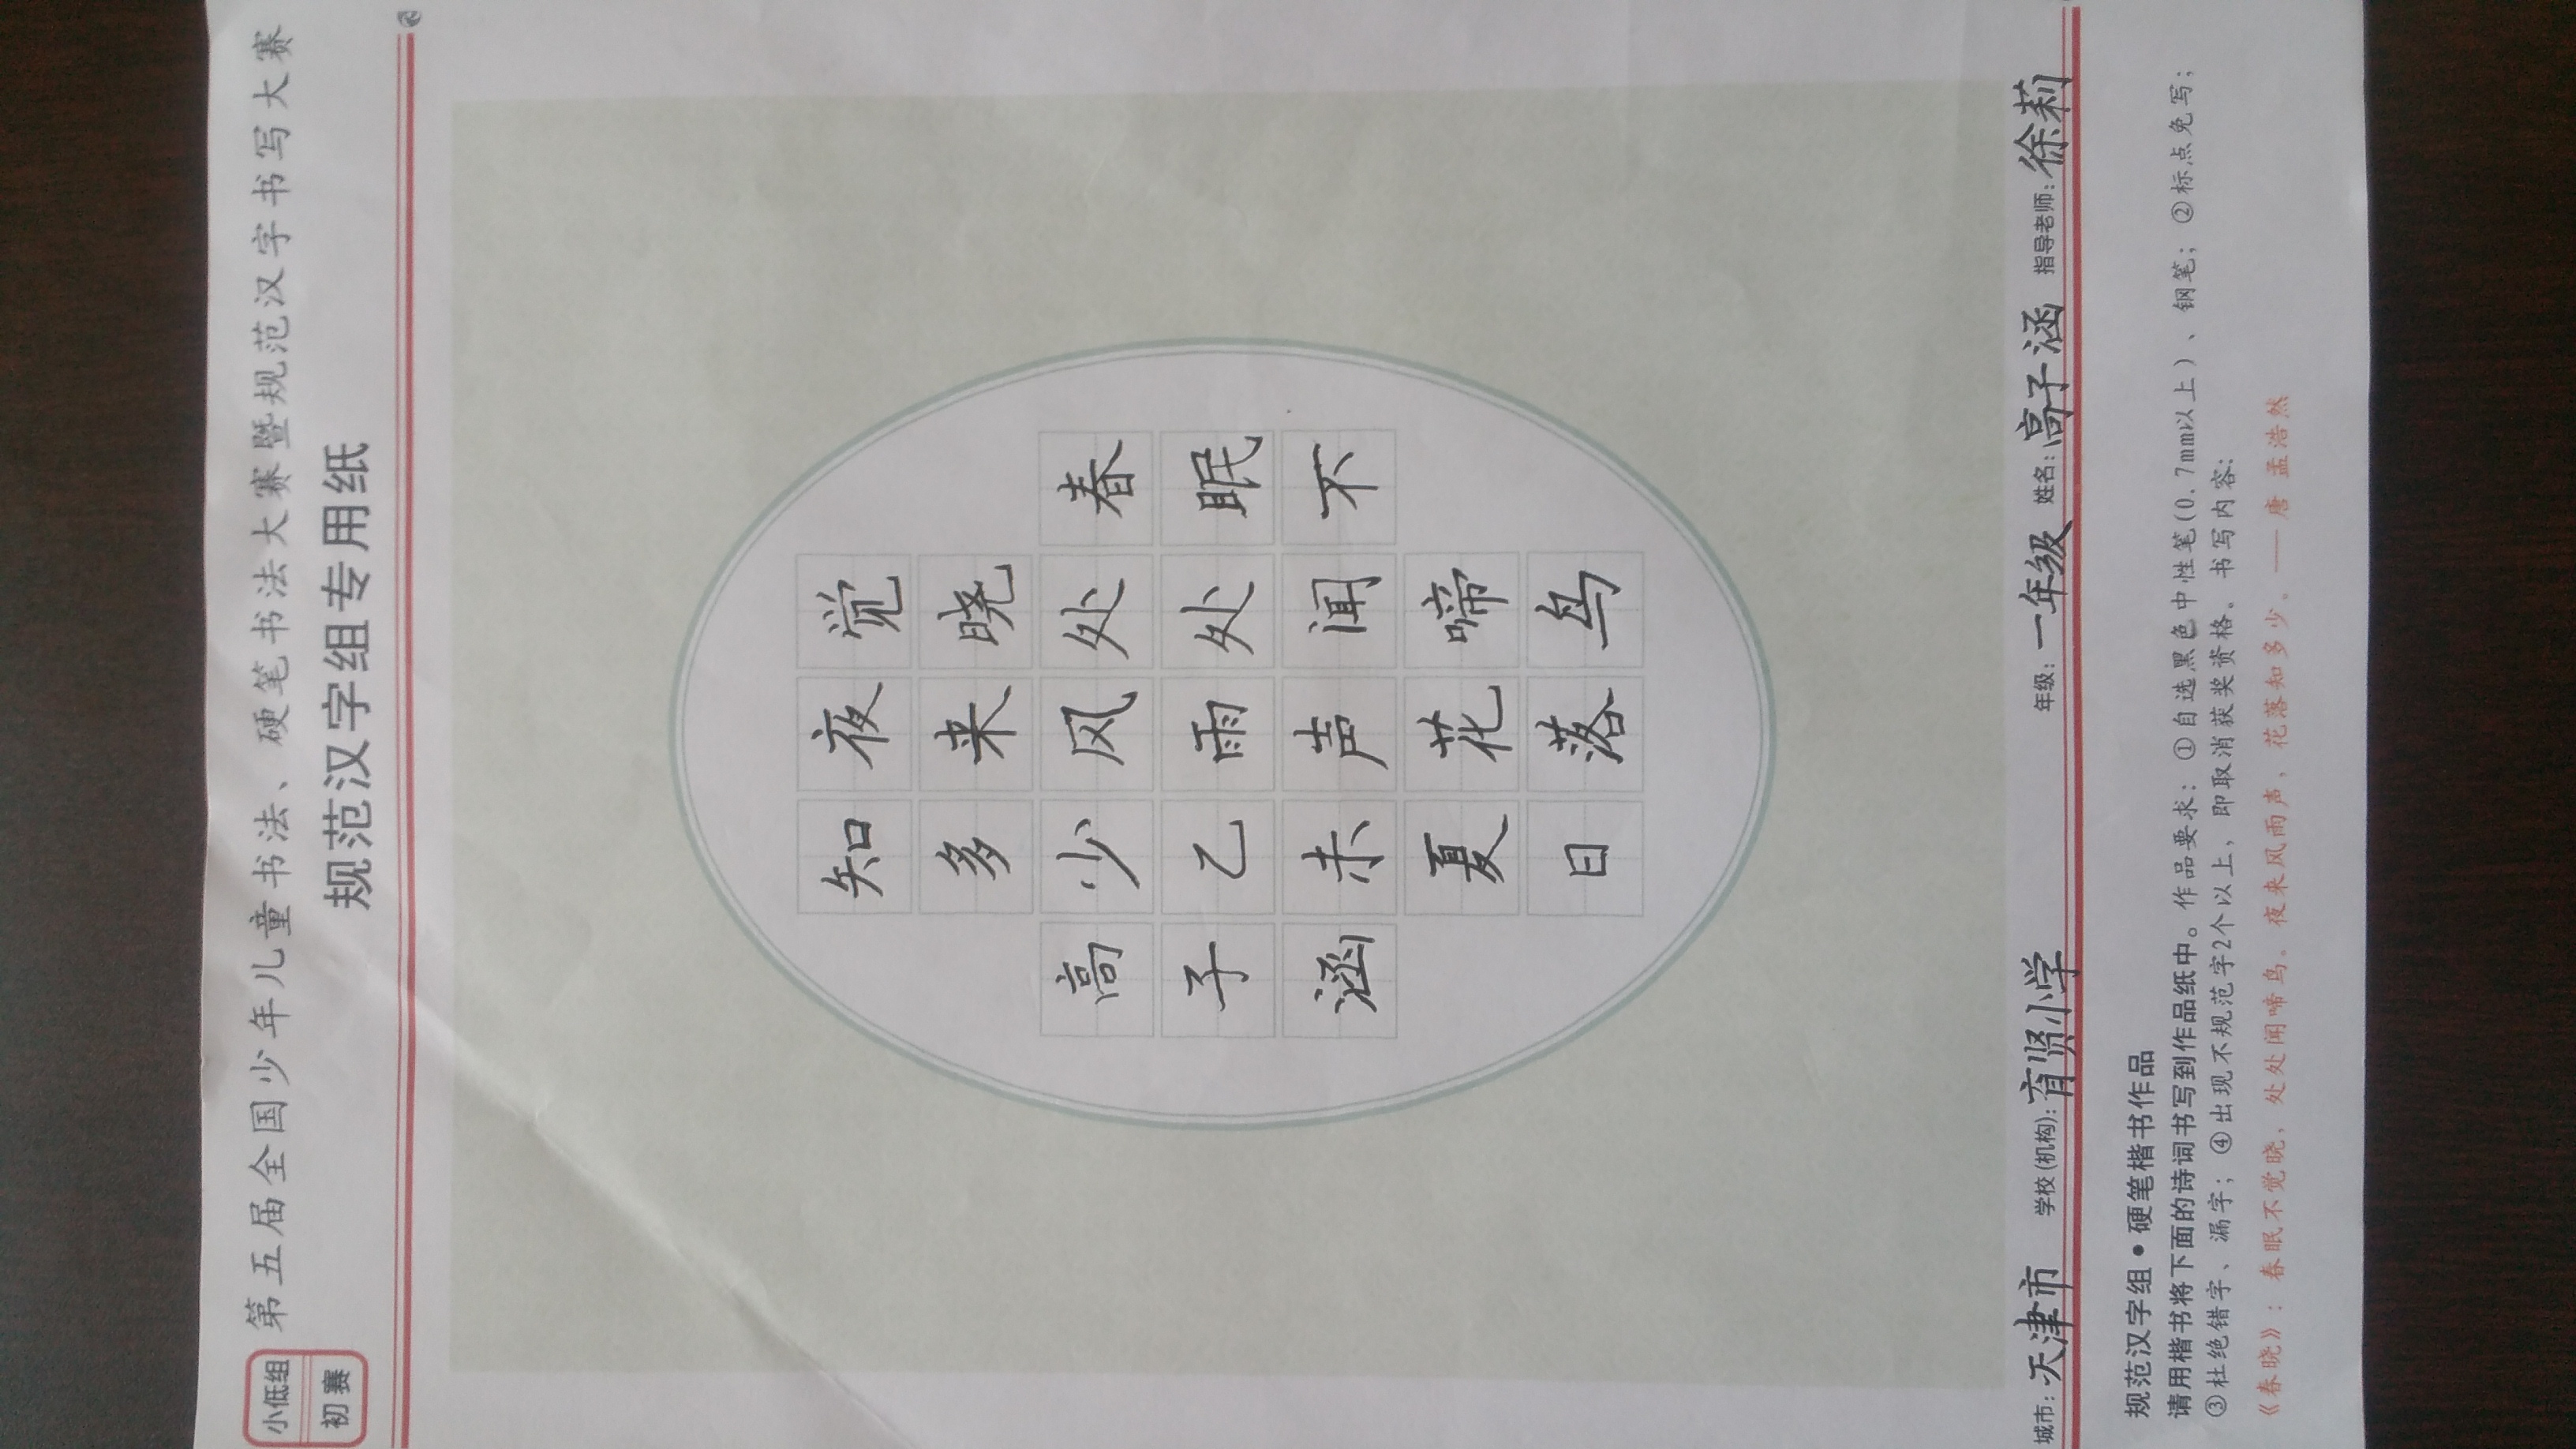 小低组
初赛
第五届全国少年儿童书法、硬笔书法大赛暨规范汉字书写大赛
规范汉字组专用纸
春眠不
觉晓处处闻啼鸟
夜来风雨声花落
知多少乙未夏日
高子涵
城市：天津市 学校(机构)：育贤小学 年级：一年级 姓名：高子涵 指导老师：徐莉
规范汉字组•硬笔楷书作品
请用楷书将下面的诗词书写到作品纸中。作品要求：①自选黑色中性笔(0.7mm以上)、钢笔；②标点免写；
③杜绝错字、漏字；④出现不规范字2个以上，即取消获奖资格。书写内容：
《春晓》：春眠不觉晓，处处闻啼鸟。夜来风雨声，花落知多少。——唐 孟浩然